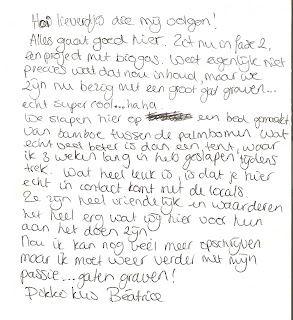 Hoi lieverdjes die mij volgen!
Alles gaat goed hier. Zit nu in fase 2,
een project met biogas. Weet eigenlijk niet
precies wat dat nou inhoud, maar we
zijn nu bezig met een groot gat graven...
echt super cool...haha.
We slapen hier op een bed gemaakt
van bamboe tussen de palmbomen. Wat
echt veel beter is dan een tent, waar
ik 3 weken lang in heb geslapen tijdens
trek. Wat heel leuk is, is dat je hier
echt in contact komt met de locals.
Ze zijn heel vriendelijk en waarderen
het heel erg wat wij hier voor hun
aan het doen zijn
Nou ik kan nog veel meer opschrijven
maar ik moet weer verder met mijn
passie...gaten graven!
Dikke kus Béatrice